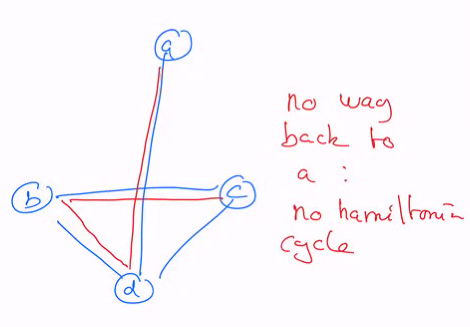 a
b
c
d
no way
back to
a :
no hamiltonian
cycle